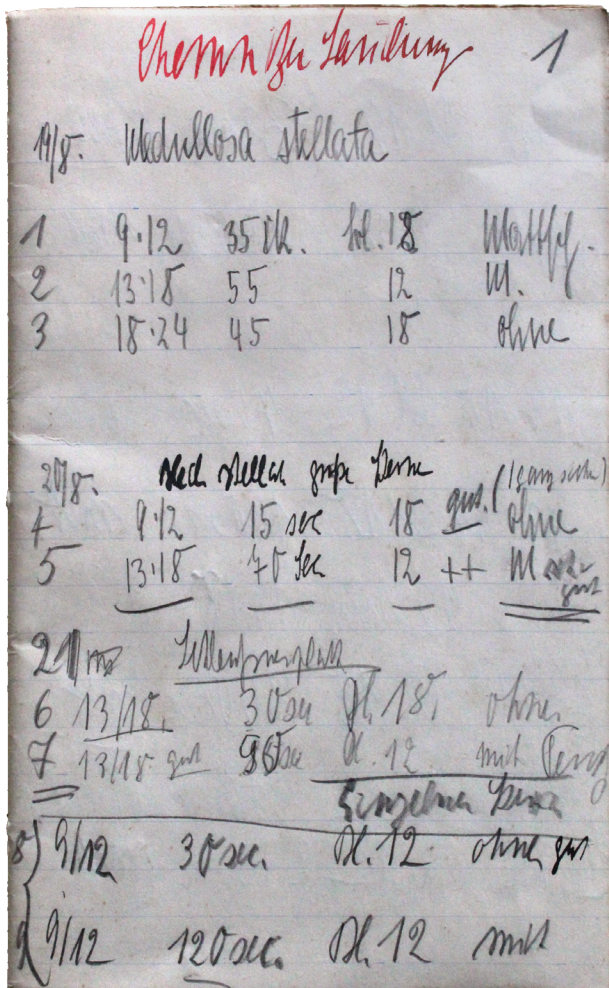 Chemnitzer Sendung 1
19/8. Medullosa stellata
1 9·12 35 Bl. 18
2 13·18 55 12 M.
3 18·24 45 18 ohne
20/8. Med. stellata große Sterne
4 9·12 15 sec 18 gut. ohne
5 13·18 70 Sec 12 ++ M gut
21
6 13/18. 30 sec Bl. 18. ohne
7 13/18 gut 90 sec Bl. 12 mit
Einzelner Stern
8 9/12 30 sec. Bl. 12 ohne gut
9 9/12 120 sec. Bl. 12 mit